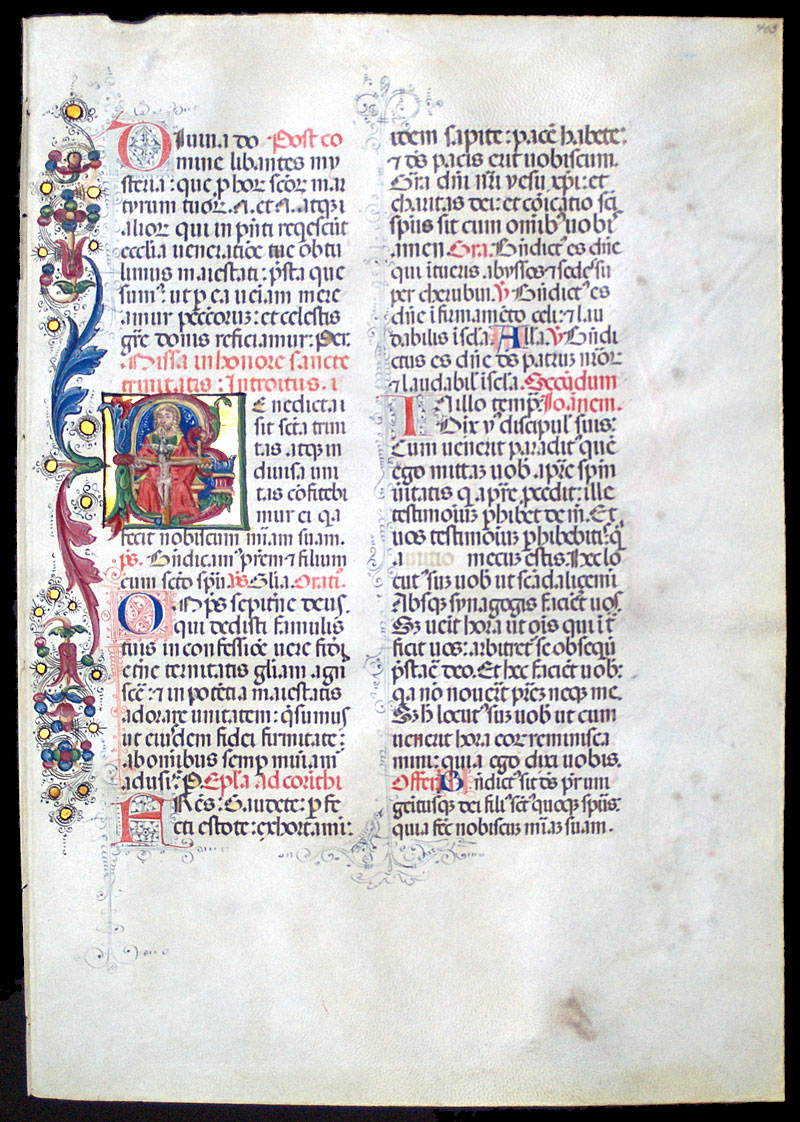 Diuina do Post co
mune libantes my
steria: que p hoꝝ scōꝝ mar
tyrum tuoꝝ .N. et .N. atqꝫ
alioꝝ qui in pn̄ti reqescūt
ecclīa ueneratiōe tue obtu
limus maiestati: pr̄sta que
sumꝰ ut p ea ueniam mere
amur peccatoꝝ: et celestis
gr̄e donis reficiamur: Per.
Missa in honore sancte
trinitatis: Introitus.
Benedicta
sit sc̄ta trini
tas atqꝫ in
diuisa uni
tas cōfitebi
mur ei q̄a
fecit nobiscum mīam suam.
ps. Bn̄dicamꝰ prēm ⁊ filium
cum sc̄to spū ps Glīa. Oratꝰ.
Om̄ps sēpitn̄e deus.
qui dedisti famulis
tuis in confessiōe uere fidei
etn̄e ternitatis glīam agn̄
scē: ⁊ in potētia maiestatis
adorare unitatem: q̄sumus
ut eiusdem fidei firmitate:
ab omnibus semp munīamꝰ
aduersis. P. Epl̄a ad corīthi
FRēs: Gaudete: pfe
cti estote: exhortamī:
idem sapite: pacē habete:
⁊ dš pacis erit uobiscum.
Gr̄a dn̄i nr̄i yesu xp̄i: et
charitas dei: et cōicatio sc̄i
spūs sit cum omībꝰ uobī
amen. Gra. Bn̄dictꝰ es dn̄e
qui ītueris abyssos ⁊ sedes su
per cherubin. ℣ Bn̄dictꝰ es
dn̄e ī firmamēto celi: ⁊ lau
dabilis ī scl̄a. Alla ℣ Bn̄di
ctus es dn̄e dš patruꝫ nr̄oꝝ
⁊ laudabilꝰ ī scl̄a. Secūdum
In illo tempr̄. Ioanem.
Dix yꝰ discipulꝰ suis:
Cum uenerit paraclitꝰ quē
ego mittaꝫ uob̄ a pr̄e spm̄
ueritatis q̄ a pr̄e pcedit: ille
testimoniuꝫ phibet de me. Et
uos testimoniuꝫ phibebitis: q̄
a initio mecuꝫ estis. Hec lo
cutꝰ suꝫ uob̄ ut n̄ scādaligemī
Absqꝫ synagogis faciēt uos.
Sꝫ ueīt hora ut oīs qui īt̄
ficit uos: arbitret̄ se obsequiū
pr̄staē deo. Et hec faciēt uob̄:
q̄a nō nouer̄t pr̄eꝫ neqꝫ me.
Sꝫ h̄ locutꝰ suꝫ uob̄ ut cum
uenerit hora eoꝝ reminisca
mini: quia ego dixi uobis.
Offer. Bn̄dictꝰ sit dš pr̄ uni
genitusqꝫ dei filiꝰ sc̄tꝰ quoqꝫ spūs:
quia fēc nobiscuꝫ mīaꝫ suam.